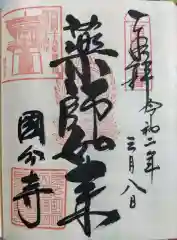 奉拝 令和二年
三月八日
薬師如来
國分寺